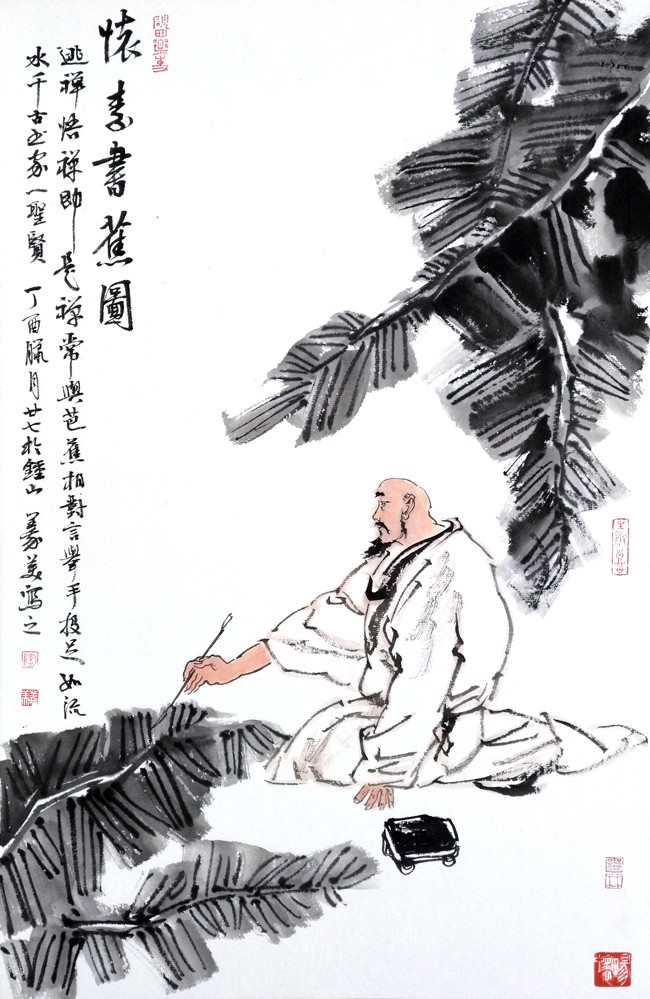 懷素書蕉圖
逃禪悟禪即是禪常與芭蕉相對言舉手投足如流
水千古書家一聖賢 丁酉臘月廿七於鍾山 義美寫之